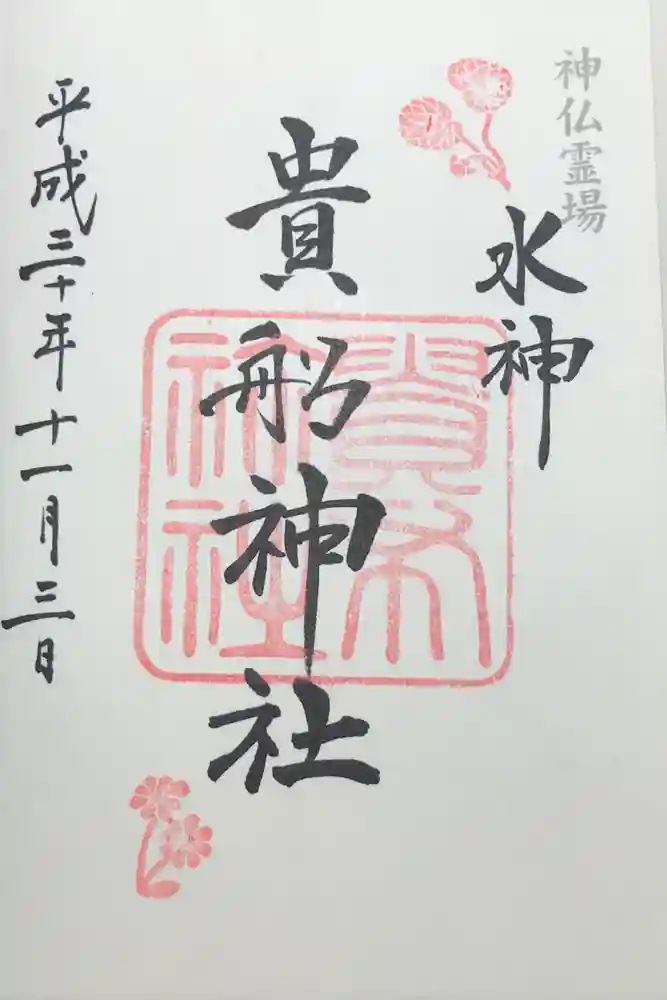 神仏霊場
水神
貴船神社
平成三十年十一月三日